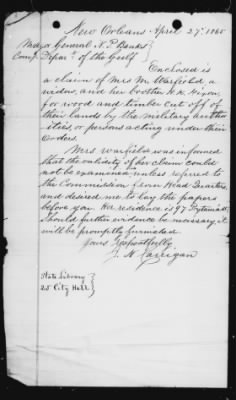 New Orleans April 27th 1865
Major General N. P. Banks
Comg Depart of the Gulf
Enclosed is
a claim of Mrs M. Warfield a
widow, and her brother H. K. Hixon,
for wood and timber cut off of
their lands by the military author
ities or persons acting under their
orders.
Mrs. Warfield was informed
that the validity of her claim could
not be examined unless referred to
the Commission from Head Quarters,
and desired me to lay the papers
before you. Her residence is 97 Prytania St
Should further evidence be necessary, it
will be promptly furnished.
Yours respectfully
J. N. Carrigan
State Library
25 City Hall